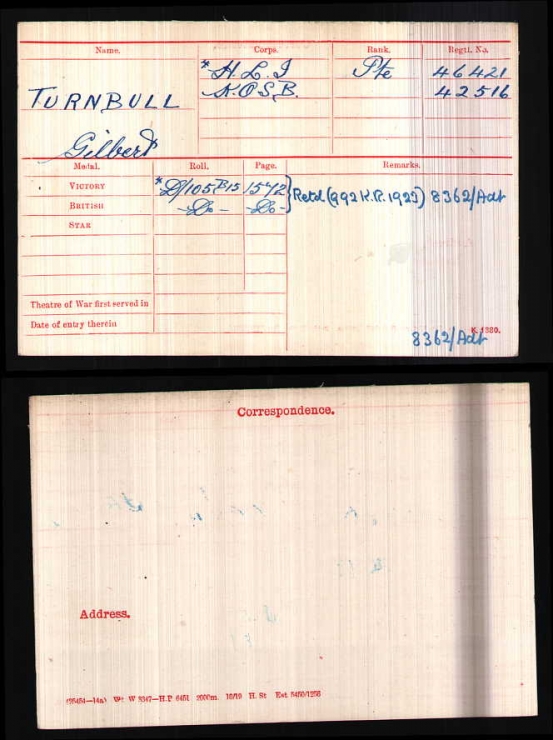 Name. Corps. Rank. Regtl. No.
* H.L.I Pte 46421
K.O.S.B. 42516
TURNBULL
Gilbert
Medal. Roll. Page. Remarks.
VICTORY * D/105B15 1572 } Retd (992 K.R. 1923) 8362/Adt
BRITISH -Do- -Do-
STAR
Theatre of War first served in
Date of entry therein
K. 1380.
8362/Adt
Correspondence.
Address.
(25454—14a) Wt W 8347—H.P 6451 2000m. 10/19 H. St Est 5450/1256